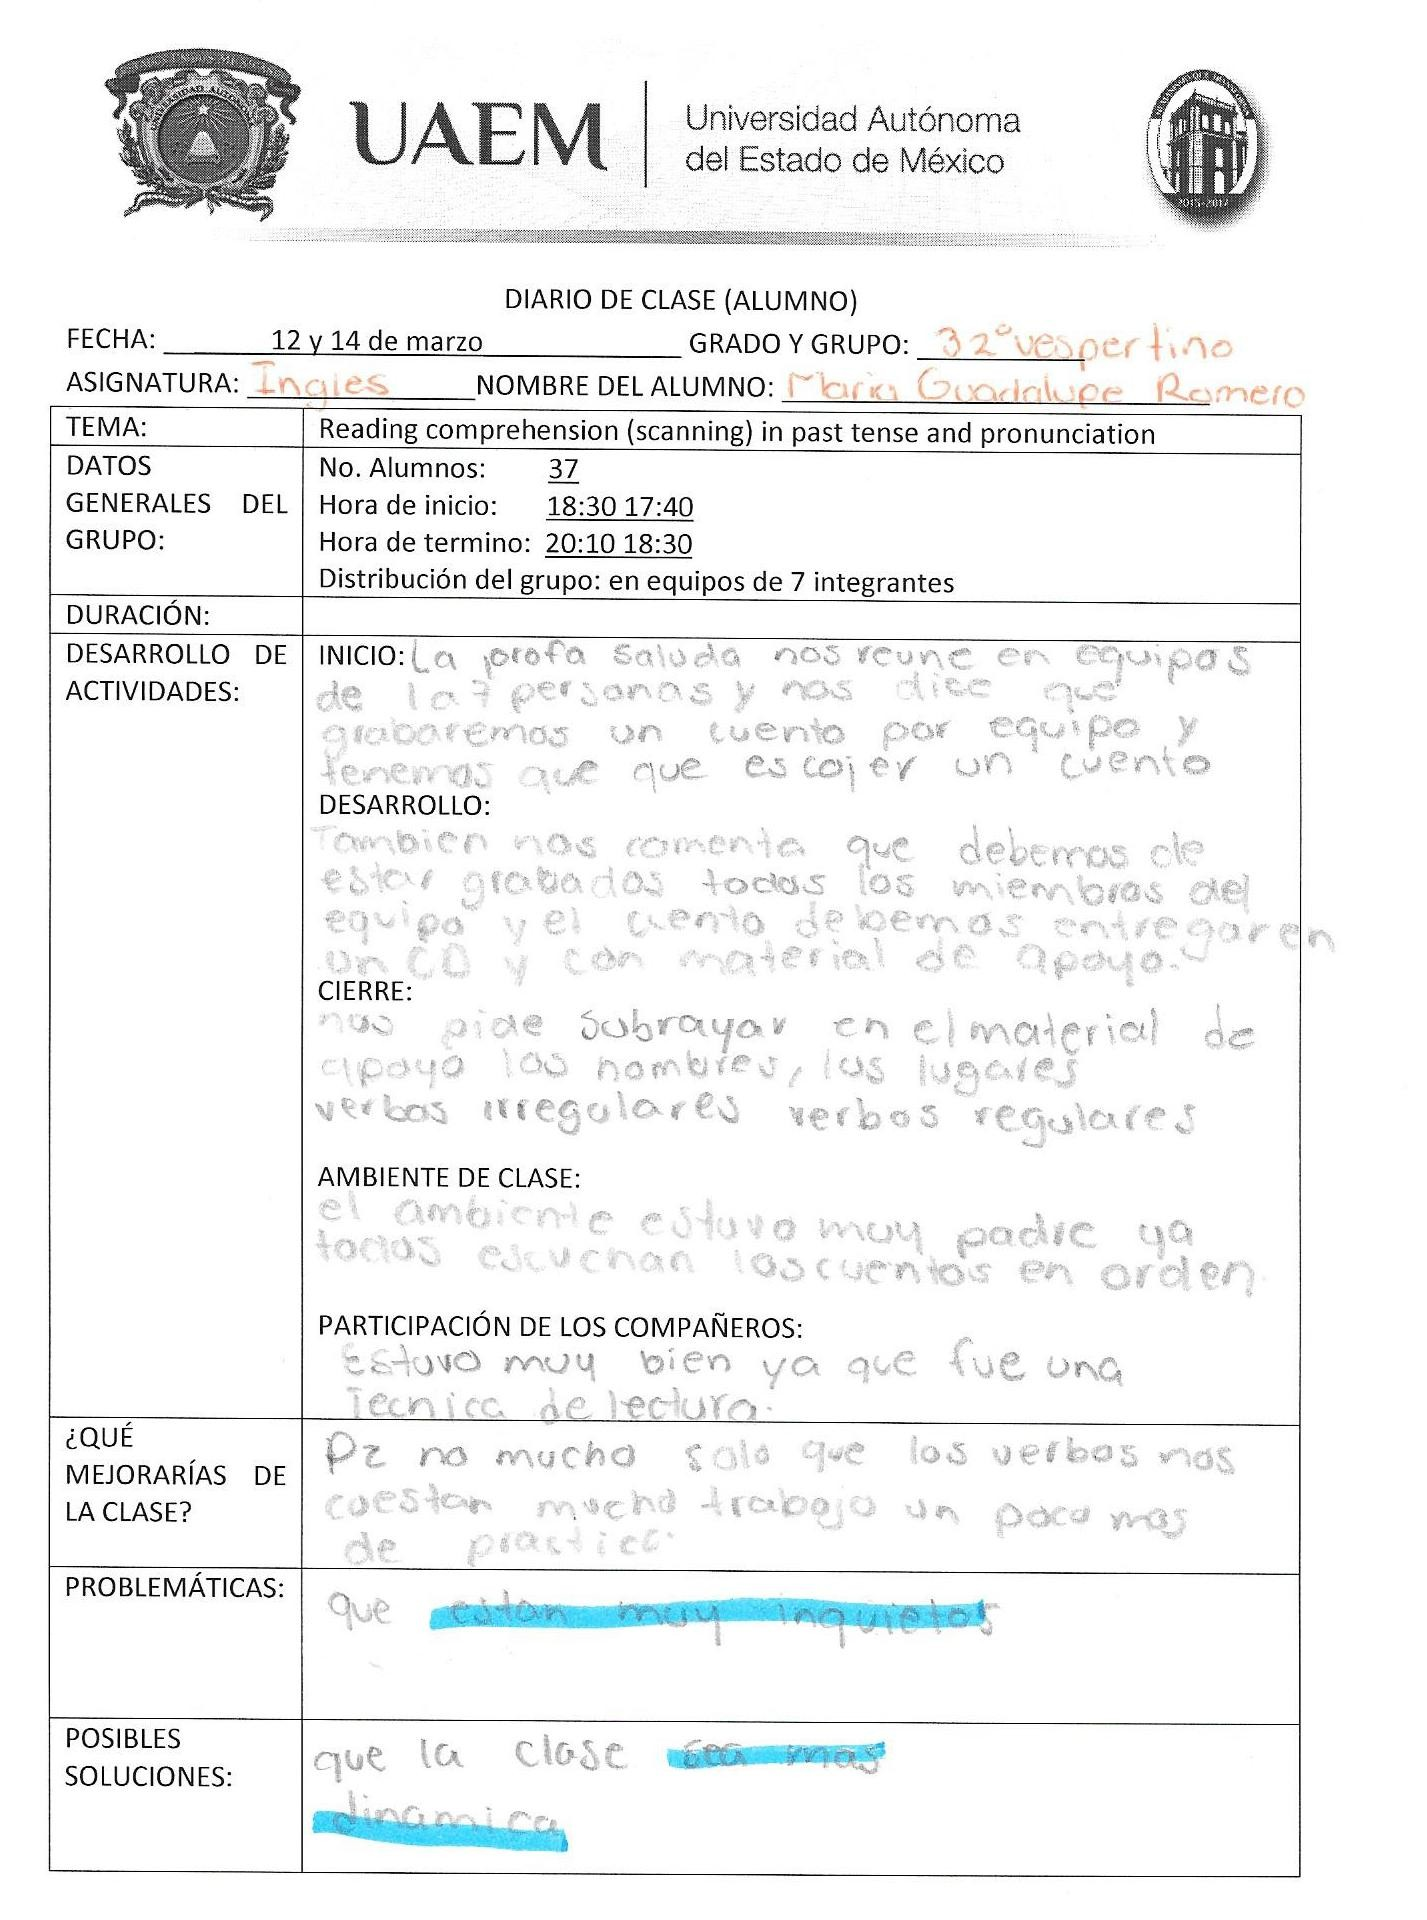 UAEM
Universidad Autónoma
del Estado de México
2015-2017
DIARIO DE CLASE (ALUMNO)
FECHA: 12 y 14 de marzo GRADO Y GRUPO: 32° vespertino
ASIGNATURA: Ingles NOMBRE DEL ALUMNO: Maria Guadalupe Romero
TEMA: Reading comprehension (scanning) in past tense and pronunciation
DATOS GENERALES DEL GRUPO:
No. Alumnos: 37
Hora de inicio: 18:30 17:40
Hora de termino: 20:10 18:30
Distribución del grupo: en equipos de 7 integrantes
DURACIÓN:
DESARROLLO DE
ACTIVIDADES:
INICIO: La profa saluda nos reune en equipos
de 1a7 personas y nos dice que
grabaremos un cuento por equipo y
tenemos que que escojer un cuento
DESARROLLO:
Tambien nos comenta que debemos de
estar grabados todos los miembros del
equipo y el cuento debemos entregar en
un CD y con material de apoyo.
CIERRE:
nos pide subrayar en el material de
apoyo los nombres, los lugares
verbos irregulares verbos regulares
AMBIENTE DE CLASE:
el ambiente estuvo muy padre ya
todos escuchan los cuentos en orden
PARTICIPACIÓN DE LOS COMPAÑEROS:
Estuvo muy bien ya que fue una
Tecnica de lectura.
¿QUÉ
MEJORARÍAS DE
LA CLASE?
Pz no mucho solo que los verbos nos
cuestan mucho trabajo un poco mas
de practica
PROBLEMÁTICAS:
que estan muy inquietos
POSIBLES
SOLUCIONES:
que la clase sea mas
dinamica